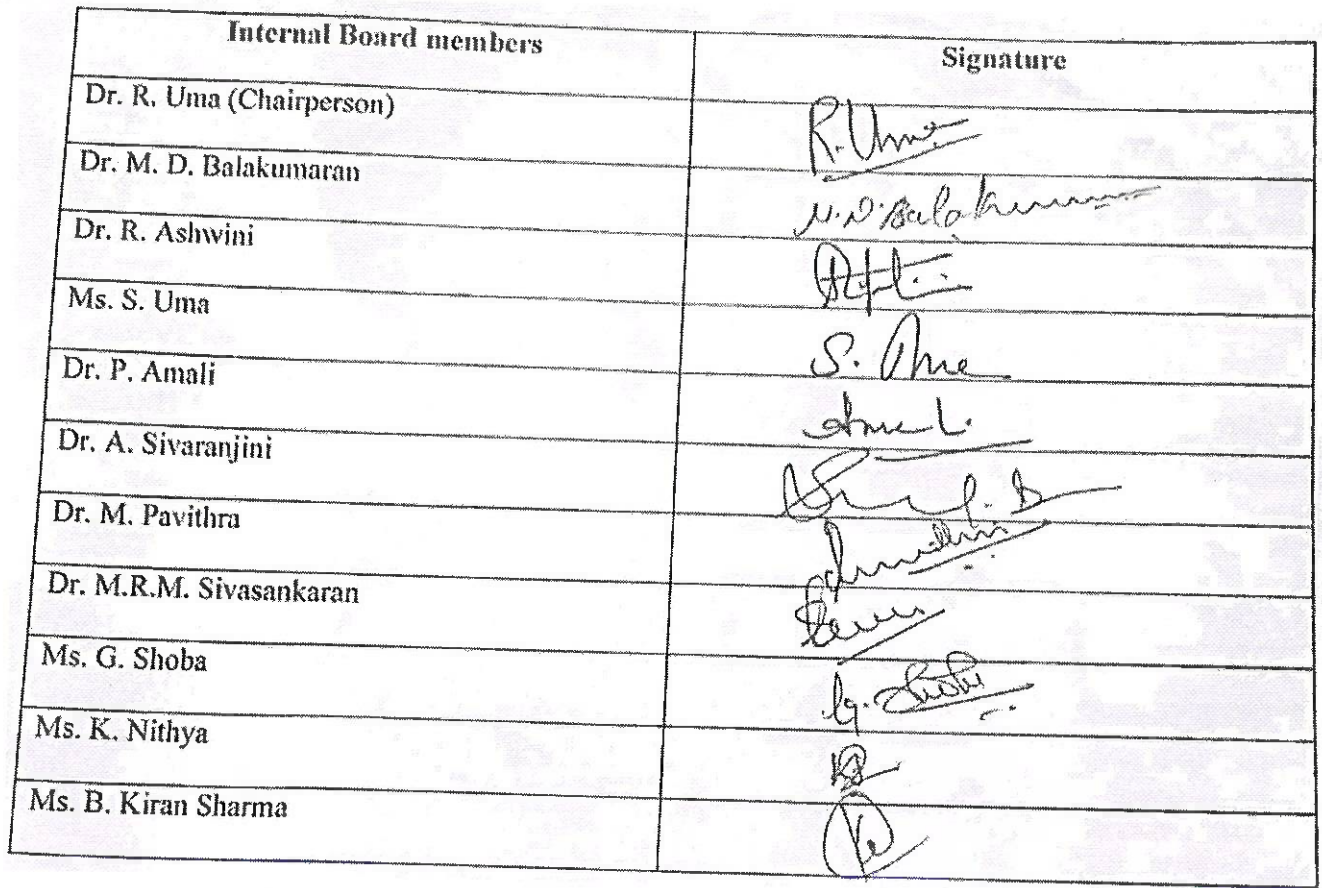 Internal Board members Signature
Dr. R. Uma (Chairperson) R. Uma
Dr. M. D. Balakumaran M. D. Balakumaran
Dr. R. Ashwini
Ms. S. Uma S. Uma
Dr. P. Amali Amali
Dr. A. Sivaranjini
Dr. M. Pavithra
Dr. M.R.M. Sivasankaran
Ms. G. Shoba G. Shoba
Ms. K. Nithya
Ms. B. Kiran Sharma